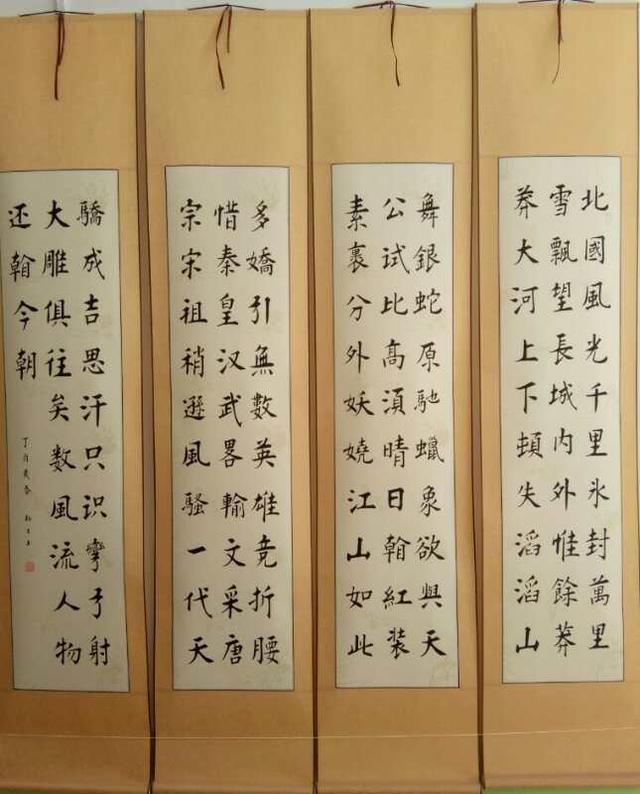 北國風光千里氷封萬里
雪飄望長城内外惟餘莽
莽大河上下頓失滔滔山
舞銀蛇原馳蠟象欲與天
公試比高湏晴日翰紅装
素裹分外妖嬈江山如此
多嬌引無數英雄竞折腰
惜秦皇汉武畧輸文采唐
宗宋祖稍遜風騷一代天
驕成吉思汗只识弯弓射
大雕俱往矣数風流人物
还翰今朝
丁酉